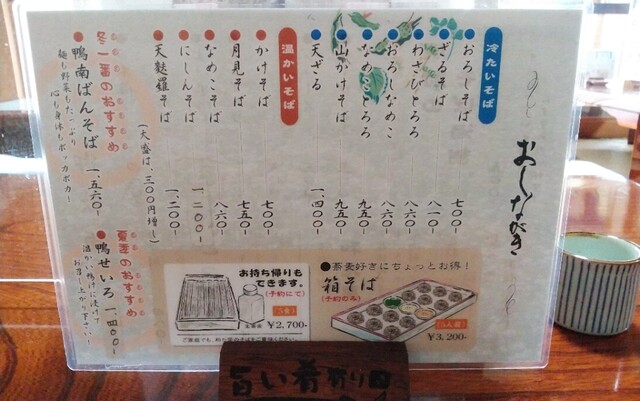 おしながき
冷たいそば
おろしそば 七〇〇-
ざるそば 八一〇-
わさびとろろ 八六〇-
おろしなめこ 八六〇-
なめことろろ 九五〇-
山かけそば 九五〇-
天ざる 一、四〇〇-
温かいそば
かけそば 七〇〇-
月見そば 七五〇-
なめこそば 八六〇-
にしんそば 一、二〇〇-
天麩羅そば 一、二〇〇-
（大盛は、三〇〇円増-）
冬一番のおすすめ
鴨南ばんそば 一、五六〇-
麺も野菜もたっぷり
心も身体もポッカポカー
夏季のおすすめ
鴨せいろ 一、四〇〇-
温かい鴨汁に浸けて
お召し上がり下さい
お持ち帰りも
できます。
(予約にて)
¥2,700-
●蕎麦好きにちょっとお得！
箱そば
(予約のみ)
¥3,200-
旨い肴有り〼